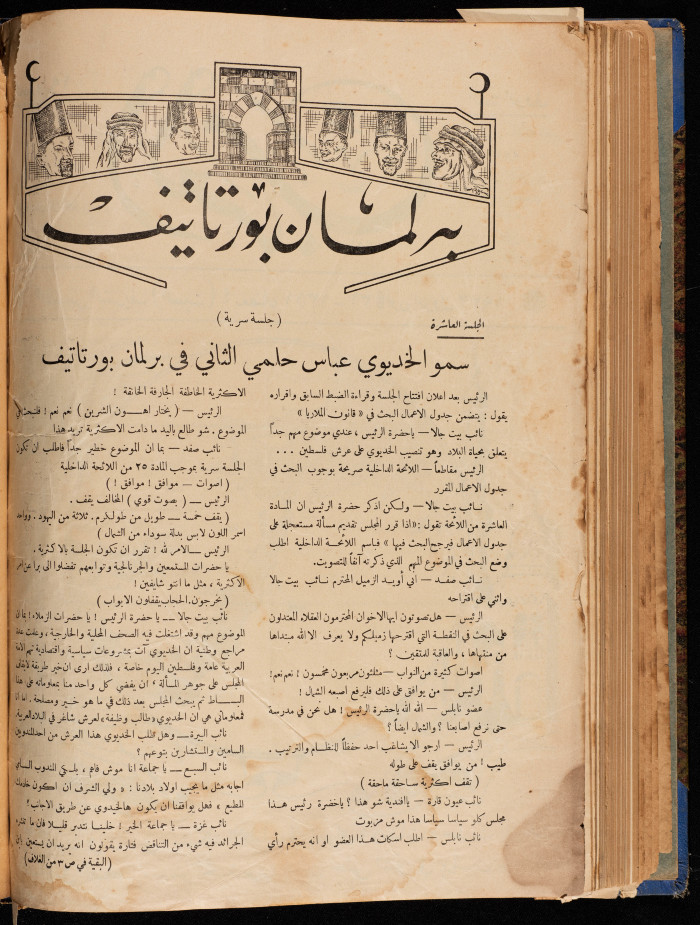 برلمان بورتاتيف
الجلسة العاشرة
( جلسة سرية )
سمو الخديوي عباس حلمي الثاني في برلمان بورتاتيف
الرئيس بعد اعلان افتتاح الجلسة وقراءة الضبط السابق واقراره
يقول : يتضمن جدول الاعمال البحث في « قانون الملاريا »
نائب بيت جالا — ياحضرة الرئيس ، عندي موضوع مهم جداً
يتعلق بحياة البلاد وهو تنصيب الخديوي على عرش فلسطين ...
الرئيس مقاطعاً — اللائحة الداخلية صريحة بوجوب البحث في
جدول الاعمال المقرر
نائب بيت جالا — ولكن اذكر حضرة الرئيس ان المادة
العاشرة من اللائحة تقول : «اذا قرر المجلس تقديم مسألة مستعجلة على
جدول الاعمال فيرجح البحث فيها » فباسم اللائحة الداخلية اطلب
وضع البحث في الموضوع المهم الذي ذكرته آنفاً للتصويت.
نائب صفد — اني أويد الزميل المحترم نائب بيت جالا
واثني على اقتراحه
الرئيس — هل تصوتون ايها الاخوان المحترمون العقلاء المعتدلون
على البحث في النقطة التي اقترحها زميلكم ولا يعرف الا الله مبتداها
من منتهاها ، والعاقبة للمتقين ؟
اصوات كثيرة من النواب — مثلثون مربعون مخمسون ! نعم نعم !
الرئيس — من يوافق على ذلك فليرفع أصبعه الشمال !
عضو نابلس — الله الله ياحضرة الرئيس ! هل نحن في مدرسة
حتى نرفع اصابعنا ؟ والشمال ايضاً ؟
الرئيس — ارجو الا يشاغب احد حفظاً للنظام والترتيب .
طيب ! من يوافق يقف على طوله
( تقف اكثرية ساحقة ماحقة )
نائب عيون قارة — يا افندية شو هذا ؟ ياحضرة رئيس هذا
مجلس كلو سياسا سياسا هذا موش مزبوت
نائب نابلس — اطلب اسكات هذا العضو او انه يحترم رأي
الاكثرية الخاطفة الجارفة الخانقة !
الرئيس — ( يختار اهون الشرين ) نعم نعم ! فلنبحث في
الموضوع . شو طالع باليد ما دامت الاكثرية تريد هذا
نائب صفد — بما ان الموضوع خطير جداً فاطلب ان تكون
الجلسة سرية بموجب المادة ٢٥ من اللائحة الداخلية
( اصوات — موافق ! موافق ! )
الرئيس — ( بصوت قوي ) المخالف يقف .
( يقف خمسة — طويل من طولكرم . ثلاثة من اليهود . وواحد
اسمر اللون لابس بدلة سوداء من الشمال )
الرئيس — الامر لله ! تقرر ان تكون الجلسة بالاكثرية .
يا حضرات المستمعين والجرنالجية وتوابعهم تفضلوا الى برا عن امر
الاكثرية ، مثل ما انتو شايفين !
( يخرجون . الحجاب يقفلون الابواب )
نائب بيت جالا — يا حضرة الرئيس ! يا حضرات الزملاء ! بما ان
الموضوع مهم وقد اشتغلت فيه الصحف المحلية والخارجية ،
مراجع وطنية ان الخديوي آت بمشروعات سياسية واقتصادية تهم الامة
العربية عامة وفلسطين اليوم خاصة ، فلذلك ارى ان خير طريقة
المجلس على جوهر المسألة ، ان يفضي كل واحد منا بمعلوماته على هذا
البساط ثم يبحث المجلس بعد ذلك في ما هو خير ومصلحة . اما انا
فمعلوماتي هي ان الخديوي «طالب وظيفة» لعرش شاغر في البلاد العربية
نائب البيرة — وهل طلب الخديوي هذا العرش من احد المندوبين
السامين والمستشارين بتوعهم ؟
نائب السبع — يا جماعة انا موش فاهم ، بلكي المندوب السامي
اجابه مثل ما يجيب اولاد بلادنا : « ولي الشرف ان اكون خادمك
المطيع » ، فهل يوافقنا ان يكون هالخديوي عن طريق الاجانب ؟
نائب غزة — يا جماعة الخير ! خلينا نتدبر قليلا فان ما تنشره
الجرائد فيه شيء من التناقض فتارة يقولون انه يريد ان يستعين
(البقية في ص ٣ من الغلاف)